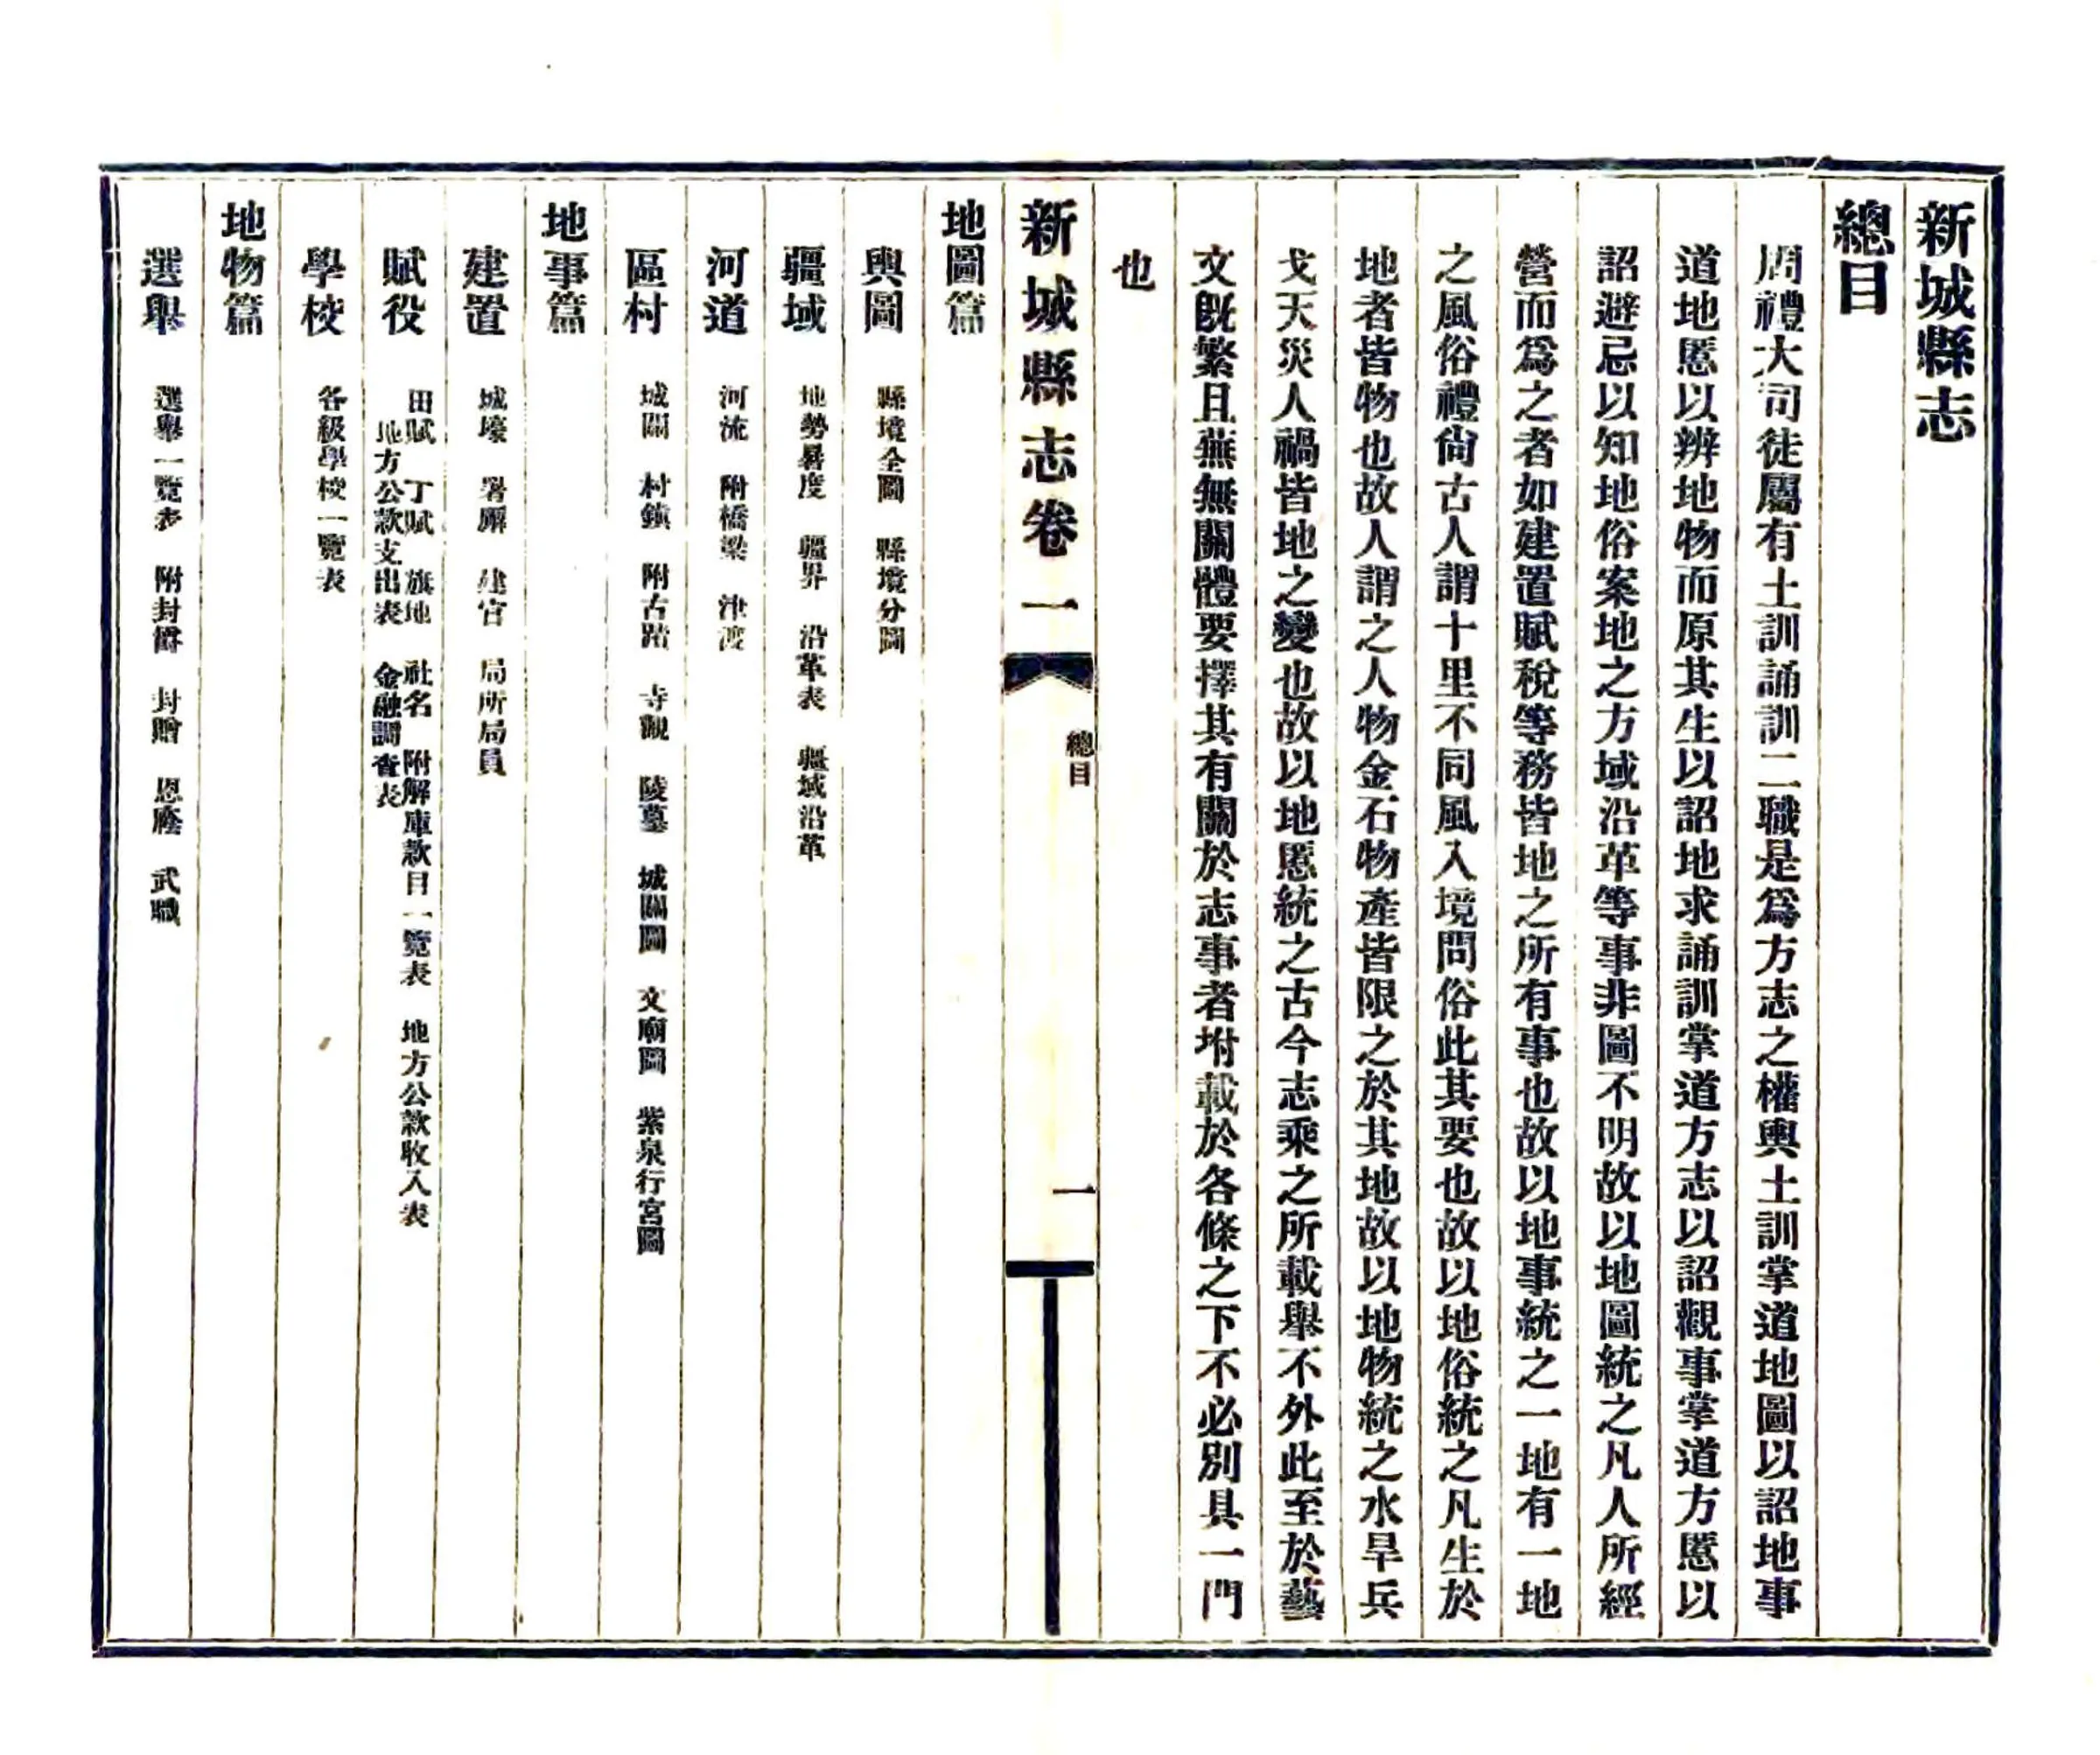 新城縣志
總目
周禮大司徒屬有土訓誦訓二職是爲方志之權輿土訓掌道地圖以詔地事
道地慝以辨地物而原其生以詔地求誦訓掌道方志以詔觀事掌道方慝以
詔避忌以知地俗案地之方域沿革等事非圖不明故以地圖統之凡人所經
營而爲之者如建置賦稅等務皆地之所有事也故以地事統之一地有一地
之風俗禮尙古人謂十里不同風入境問俗此其要也故以地俗統之凡生於
地者皆物也故人謂之人物金石物產皆限之於其地故以地物統之水旱兵
戈天災人禍皆地之變也故以地慝統之古今志乘之所載舉不外此至於藝
文旣繁且蕪無關體要擇其有關於志事者坿載於各條之下不必別具一門
也
新城縣志卷一
總目
一
地圖篇
輿圖 縣境全圖 縣境分圖
疆域 地勢晷度 疆界 沿革表 疆域沿革
河道 河流 附橋梁 津渡
區村 城關 村鎮 附古蹟 寺觀 陵墓 城關圖 文廟圖 紫泉行宮圖
地事篇
建置 城壕 署廨 建官 局所局員
賦役 田賦 丁賦 旗地 社名 附解庫款目一覽表 地方公款收入表
地方公款支出表 金融調查表
學校 各級學校一覽表
地物篇
選舉 選舉一覽表 附封爵 封贈 恩廕 武職